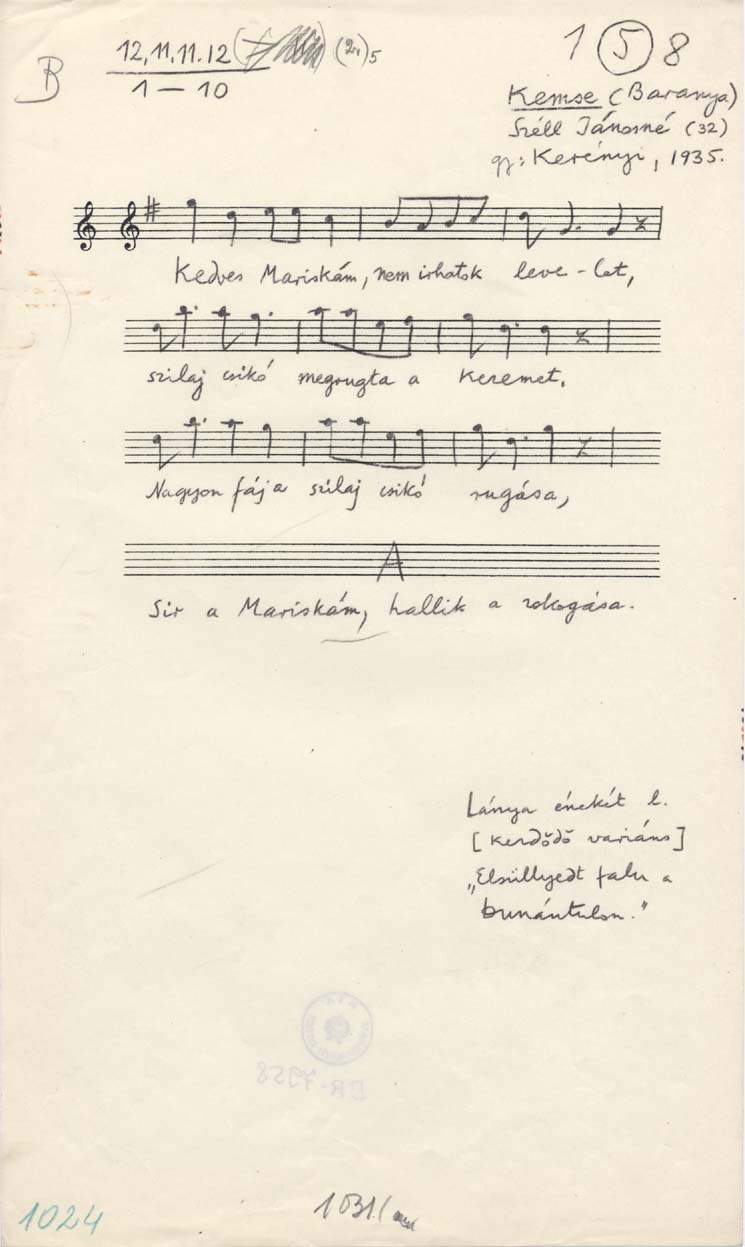 B
12,11,11.12 (2.)5
1 — 10
1 5 8
Kemse (Baranya)
Széll Jánosné (32)
gy: Kerényi, 1935.
Kedves Mariskám, nem irhatok leve-let,
szilaj csikó megrugta a kezemet.
Nagyon fáj a szilaj csikó rugása,
A
Sir a Mariskám, hallik a zokogása.
Lánya énekét l.
[kezdődő variáns]
„Elsüllyedt falu a
Dunántulon."
BR-7958
1024
1031